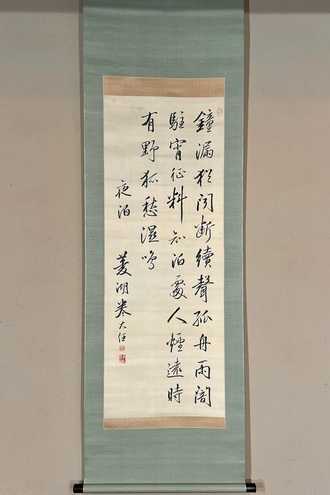 鐘漏猶聞断續聲孤舟雨闇
駐宵征料知泊處人煙遠時
有野狐愁濕鳴
夜泊
菱湖巻大任